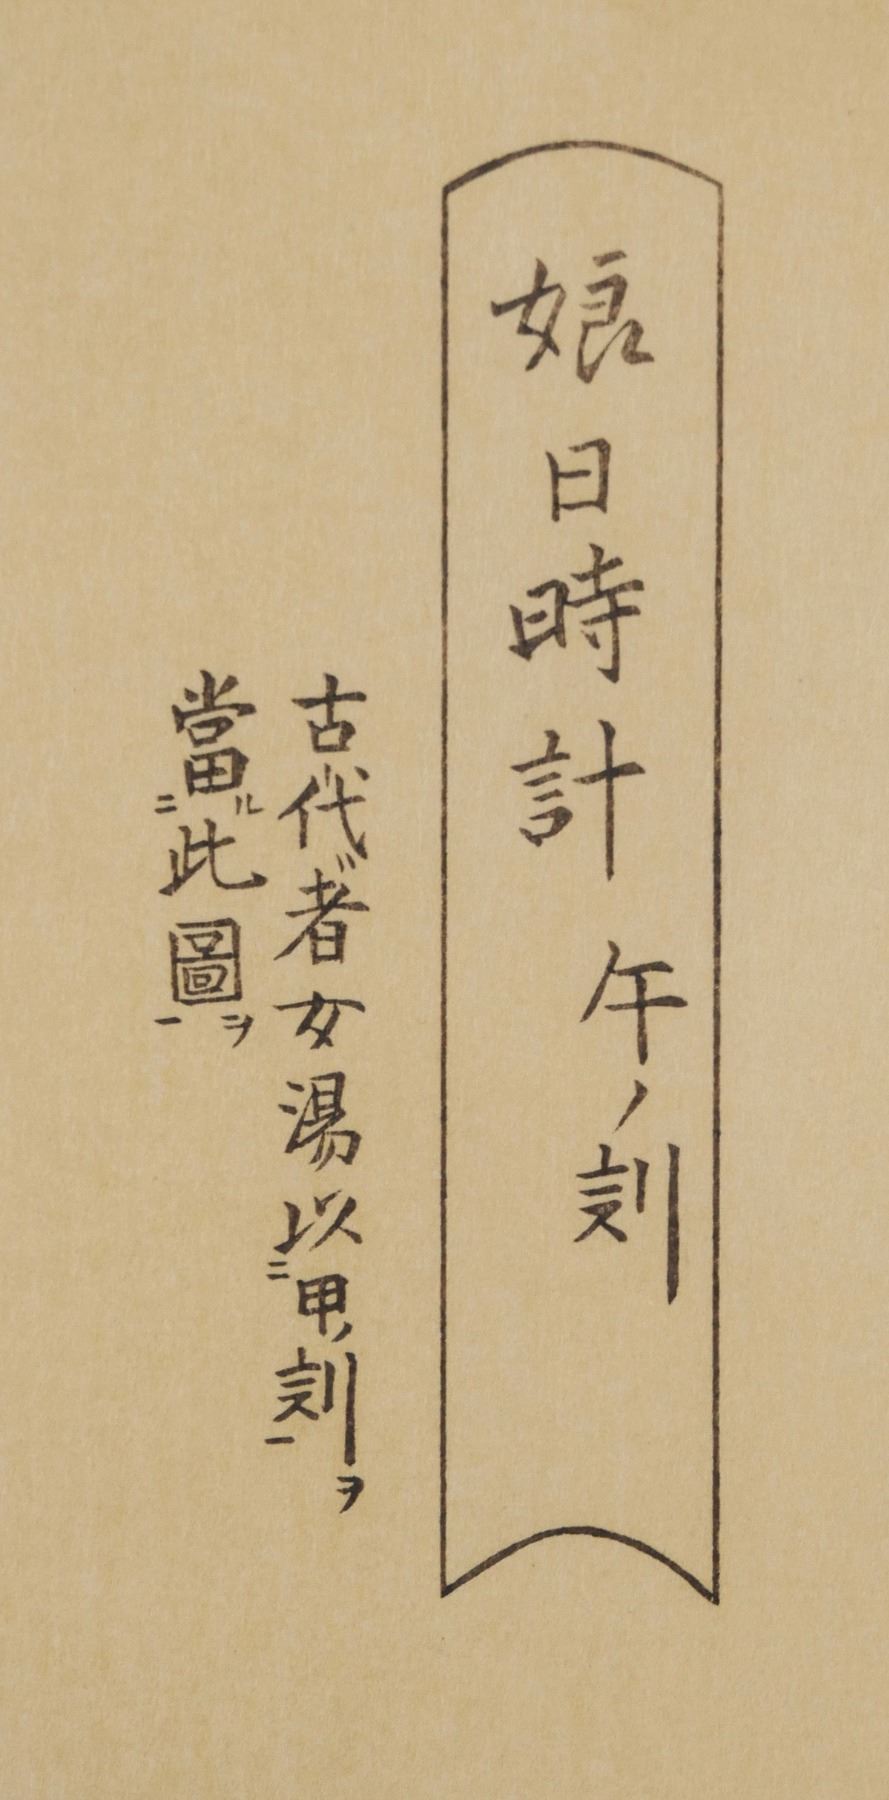 娘日時計 午ノ刻
古代者女湯以二甲ノ刻一ヲ
當二ル此圖一ヲ